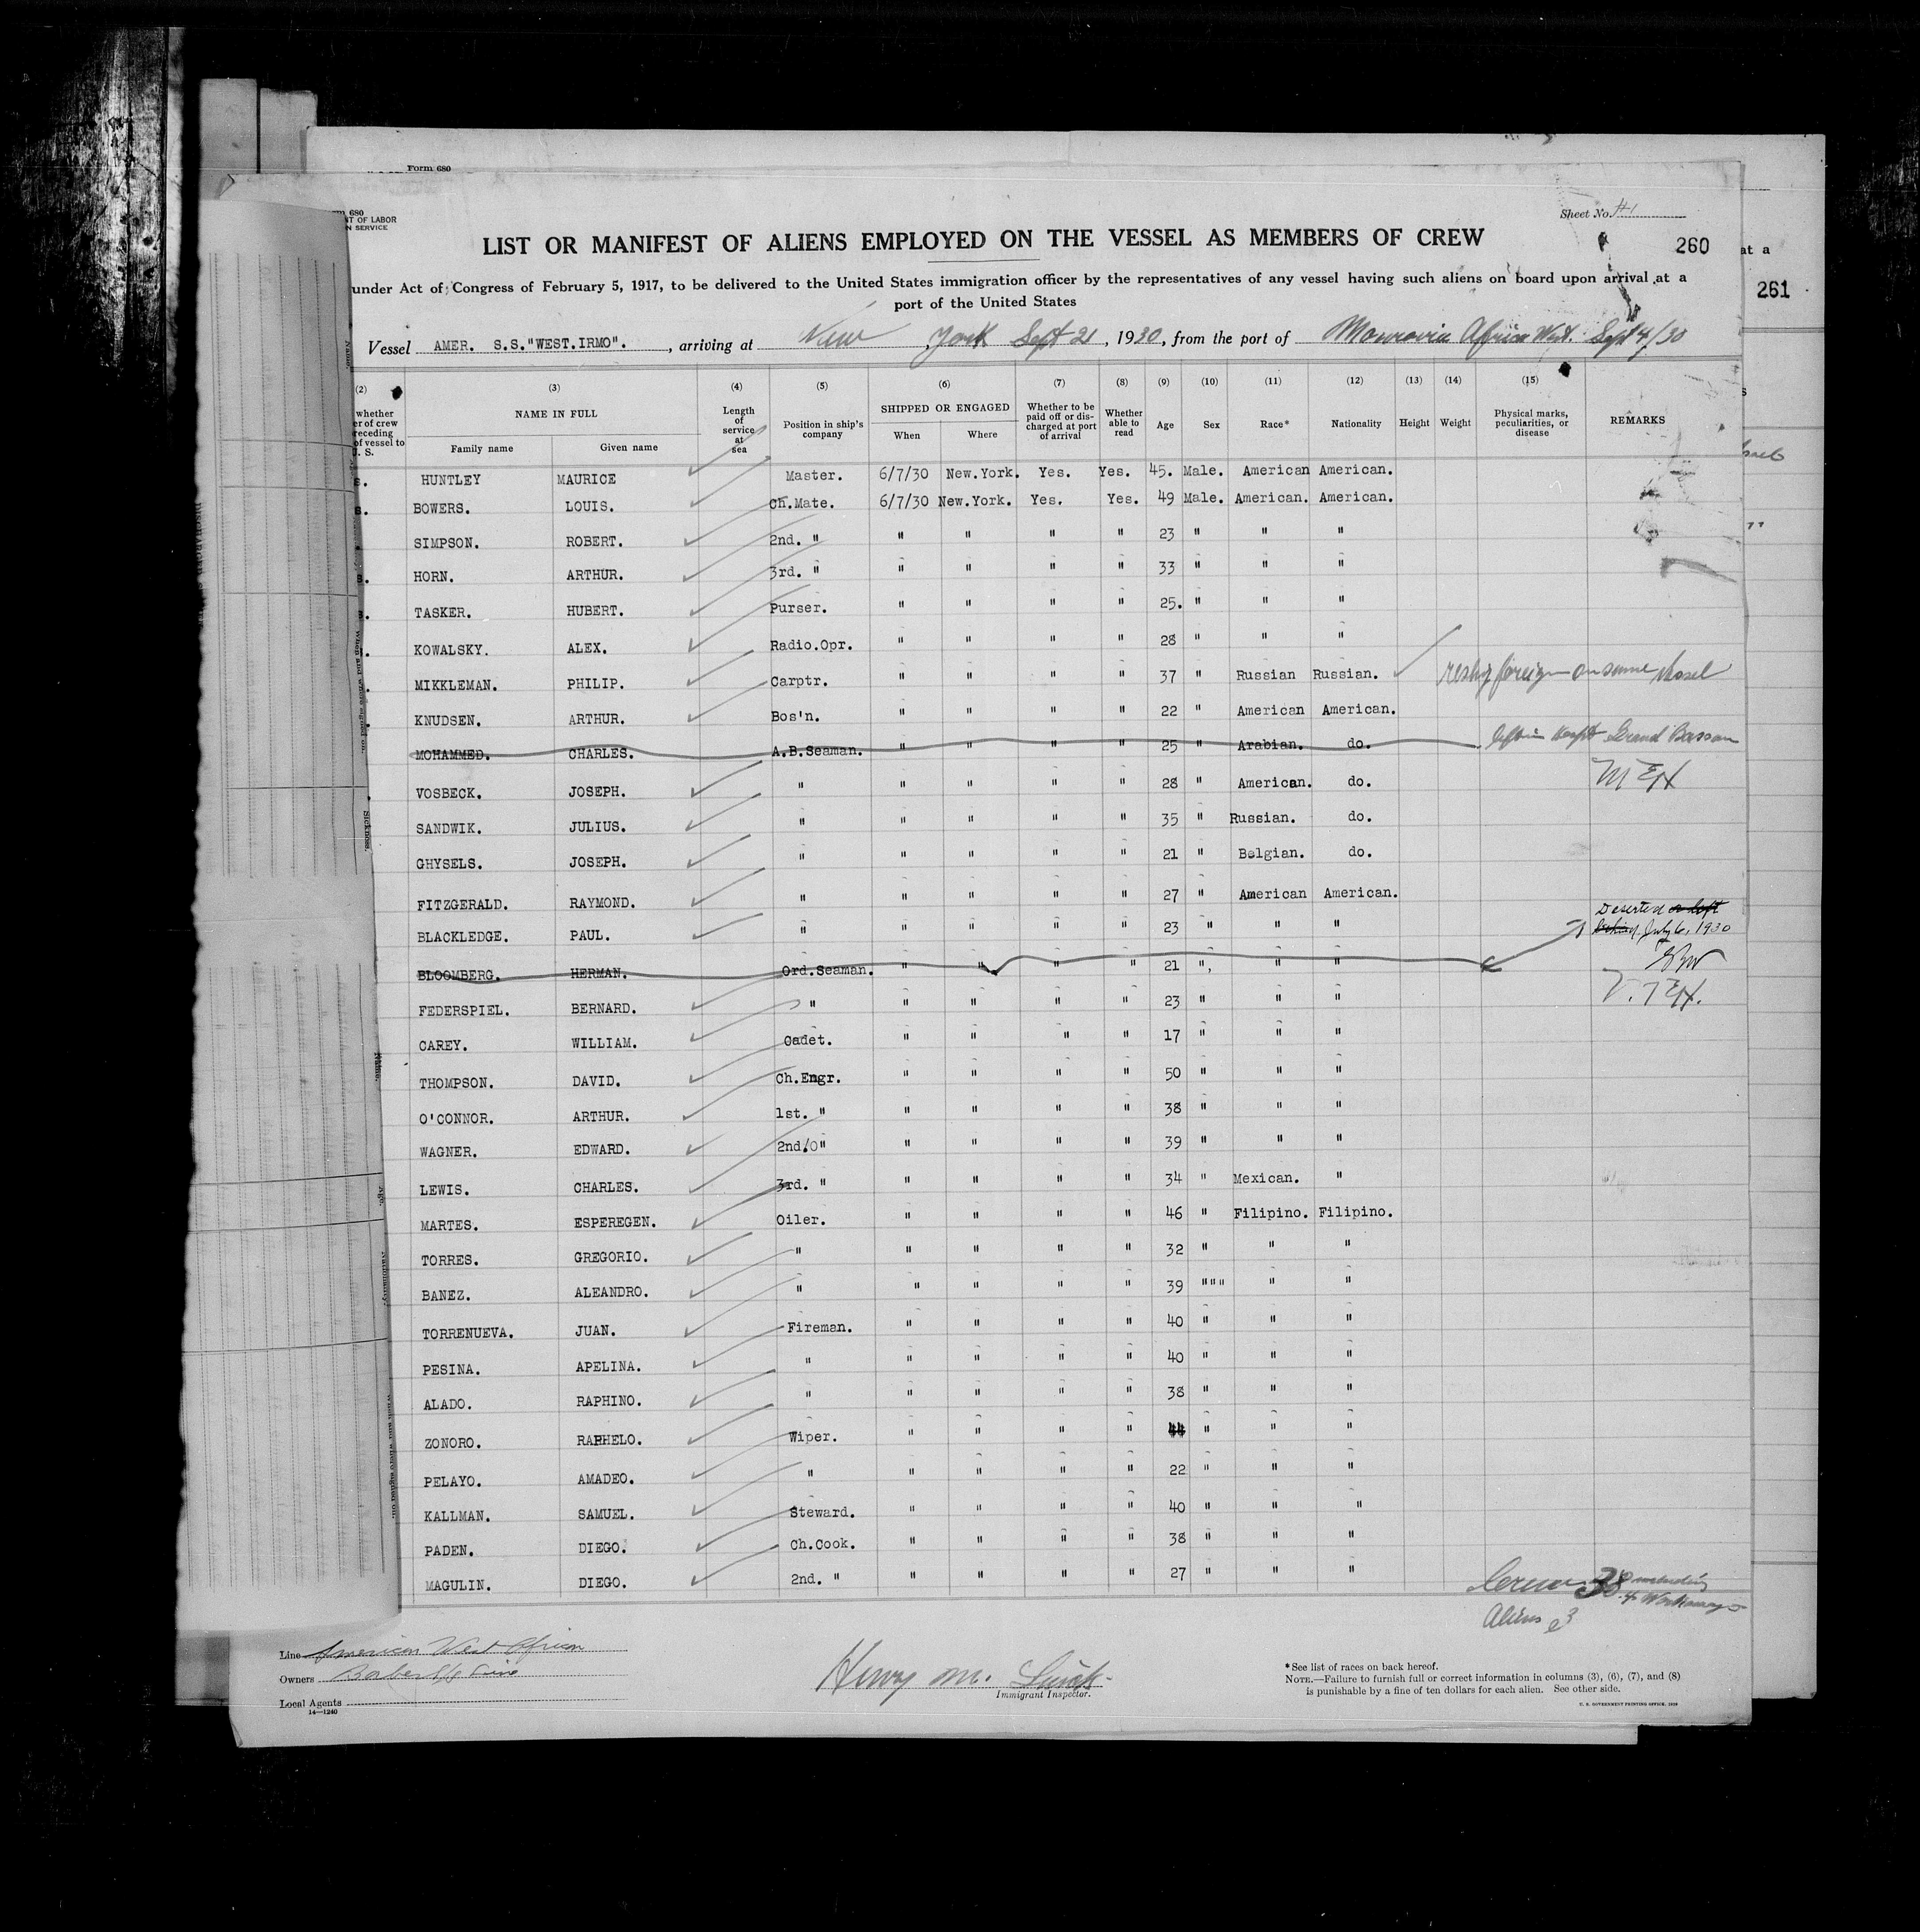 Form 680
rm 680
NT OF LABOR
N SERVICE
Sheet No. #1
LIST OR MANIFEST OF ALIENS EMPLOYED ON THE VESSEL AS MEMBERS OF CREW
260
at a
261
under Act of Congress of February 5, 1917, to be delivered to the United States immigration officer by the representatives of any vessel having such aliens on board upon arrival at a
port of the United States
Vessel AMER. S.S."WEST.IRMO". , arriving at New York Sept 21 , 1930, from the port of Monrovia Africa West. Sept 4/30
(2) (3) (4) (5) (6) (7) (8) (9) (10) (11) (12) (13) (14) (15)
whether
er of crew
receding
of vessel to
U. S.
NAME IN FULL
Family name Given name
Length of service at sea
Position in ship's company
SHIPPED OR ENGAGED
When Where
Whether to be paid off or discharged at port of arrival
Whether able to read
Age Sex Race* Nationality Height Weight
Physical marks, peculiarities, or disease
REMARKS
s. HUNTLEY MAURICE Master. 6/7/30 New.York. Yes. Yes. 45. Male. American American.
s. BOWERS. LOUIS. Ch.Mate. 6/7/30 New.York. Yes. Yes. 49 Male. American. American.
SIMPSON. ROBERT. 2nd. " " " " " 23 " " "
s. HORN. ARTHUR. 3rd. " " " " " 33 " " "
TASKER. HUBERT. Purser. " " " " 25. " " "
KOWALSKY. ALEX. Radio.Opr. " " " " 28 " " "
MIKKLEMAN. PHILIP. Carptr. " " " " 37 " Russian Russian. reship foreign on same vessel
KNUDSEN. ARTHUR. Bos'n. " " " " 22 " American American.
MOHAMMED. CHARLES. A.B.Seaman. " " " " 25 " Arabian. do. left in hospt Grand Bassam
VOSBECK. JOSEPH. " " " " " 28 " American. do.
SANDWIK. JULIUS. " " " " " 35 " Russian. do.
GHYSELS. JOSEPH. " " " " " 21 " Belgian. do.
FITZGERALD. RAYMOND. " " " " " 27 " American American.
BLACKLEDGE. PAUL. " " " " " 23 " " " Deserted or left
behind July 6, 1930
BLOOMBERG. HERMAN. Ord.Seaman. " " " " 21 ", " "
FEDERSPIEL. BERNARD. " " " " " 23 " " "
CAREY. WILLIAM. Cadet. " " " " 17 " " "
THOMPSON. DAVID. Ch.Engr. " " " " 50 " " "
O'CONNOR. ARTHUR. 1st. " " " " " 38 " " "
WAGNER. EDWARD. 2nd./0" " " " " 39 " " "
LEWIS. CHARLES. 3rd. " " " " " 34 " Mexican. "
MARTES. ESPEREGEN. Oiler. " " " " 46 " Filipino. Filipino.
TORRES. GREGORIO. " " " " " 32 " " "
BANEZ. ALEANDRO. " " " " " 39 """ " "
TORRENUEVA. JUAN. Fireman. " " " " 40 " " "
PESINA. APELINA. " " " " " 40 " " "
ALADO. RAPHINO. " " " " " 38 " " "
ZONORO. RAPHELO. Wiper. " " " " 44 " " "
PELAYO. AMADEO. " " " " " 22 " " "
KALLMAN. SAMUEL. Steward. " " " " 40 " " "
PADEN. DIEGO. Ch.Cook. " " " " 38 " " "
MAGULIN. DIEGO. 2nd. " " " " " 27 " " "
Crew 38 including
4 Workaways
Aliens 3
Line American West African
Owners Barber SS Line
Local Agents
14—1240
Henry M.
Immigrant Inspector.
*See list of races on back hereof.
NOTE.—Failure to furnish full or correct information in columns (3), (6), (7), and (8)
is punishable by a fine of ten dollars for each alien. See other side.
U. S. GOVERNMENT PRINTING OFFICE: 1929